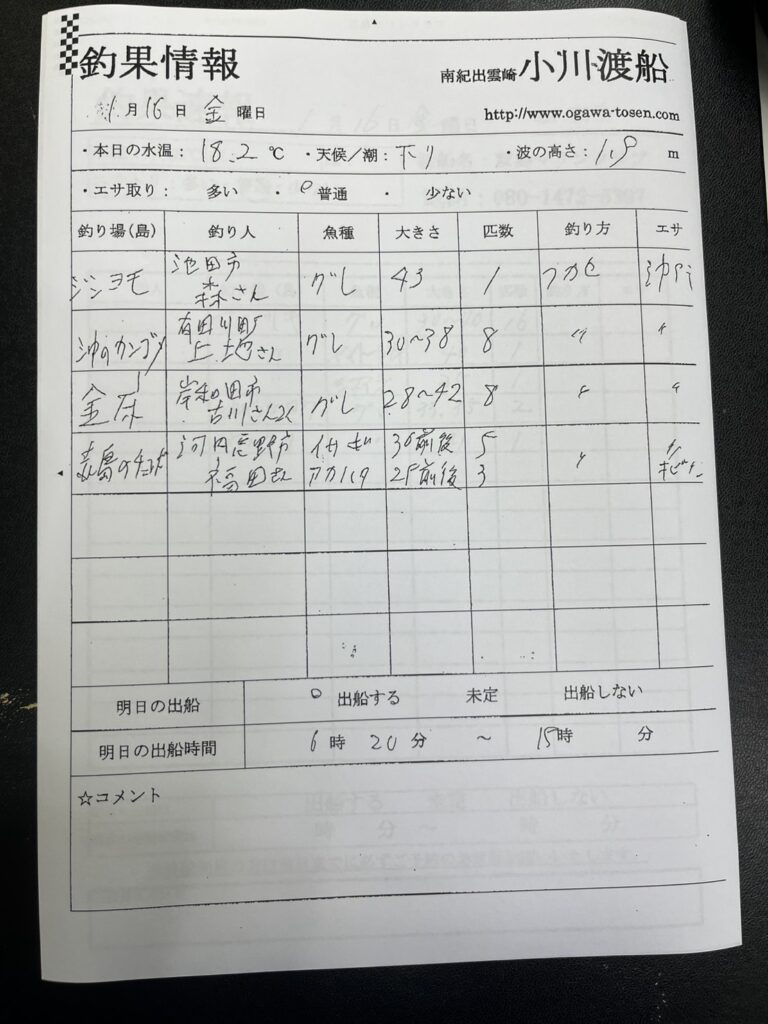 釣果情報
南紀出雲崎 小川渡船
月 16 日 金 曜日
http://www.ogawa-tosen.com
・本日の水温： 18.2 ℃ ・天候／潮： 下り ・波の高さ： 1.9 m
・エサ取り： 多い ・ 普通 ・ 少ない
釣り場（島） 釣り人 魚種 大きさ 匹数 釣り方 エサ
池田市
ジンヨモ 森さん グレ 43 1 フカセ 沖アミ
有田川町
沖のカンゴリ 上地さん グレ 30～38 8 〃 〃
岸和田市
古川さん グレ 28～42 8 〃 〃
河内長野市 イサギ 30前後 5
福田さん アカハタ 25前後 3 〃
明日の出船 ○ 出船する 未定 出船しない
明日の出船時間 6 時 20 分 ～ 15 時 分
☆コメント